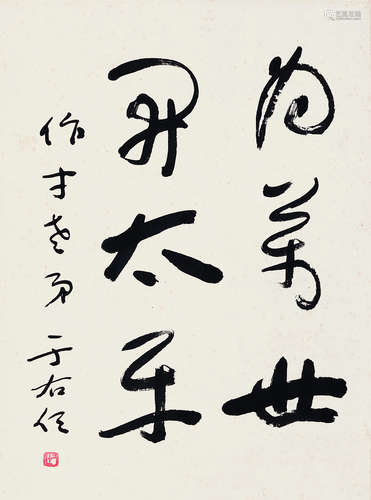 為萬世
開太平
作才老弟 于右任